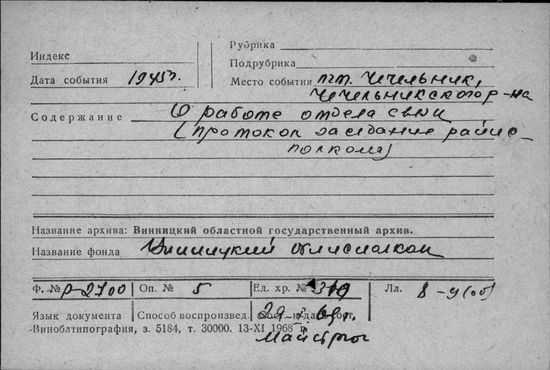 Рубрика
Индекс
Подрубрика
Дата события 1945г.
Место события пгт. Чечельник,
Чечельникского р-на
Содержание О работе отдела связи
(протокол заседание райис-
полкома)
Название архива: Винницкий областной государственный архив.
Название фонда Винницкий облисполком
Ф. № Р-2700 Оп. № 5 Ед. хр. № 319 Лл. 8-9(об)
Язык документа Способ воспроизвед. сост. и дата сост.
29 69г.
Виноблтипография, з. 5184, т. 30000. 13-XI 1968 г.